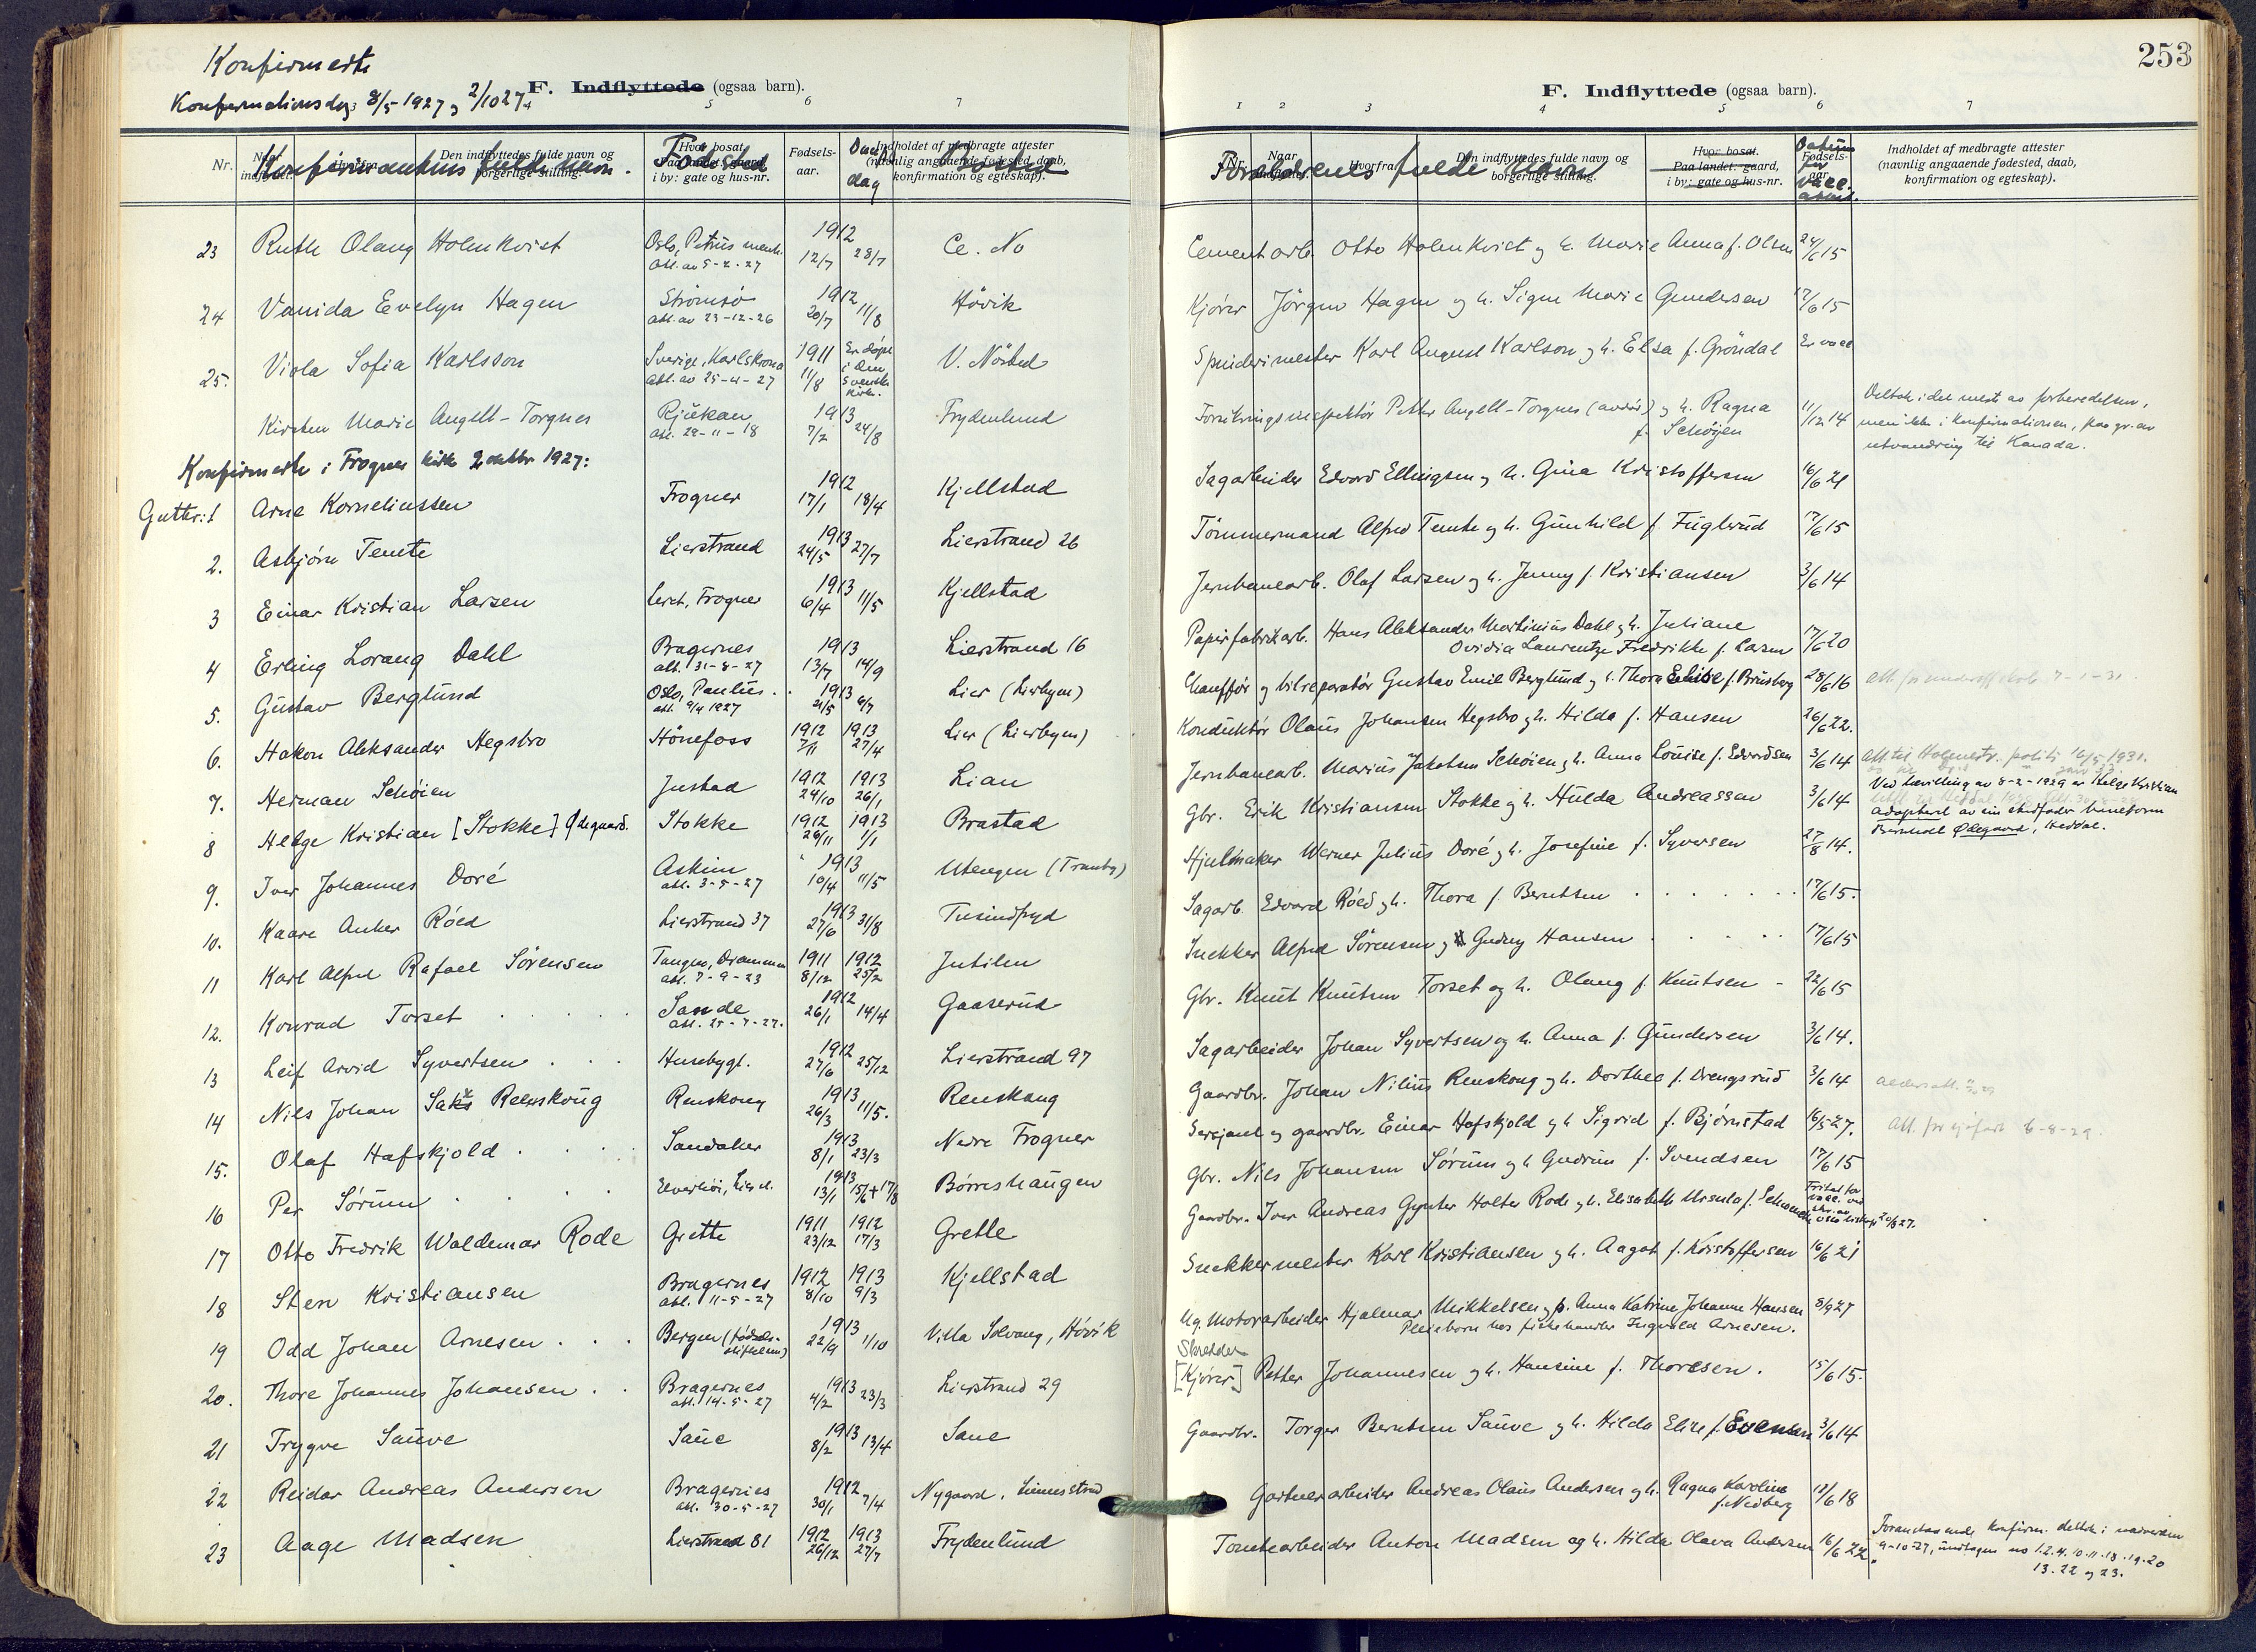 253
Konfirmerte
Konfirmationsdag 8/5-1927 og 2/10 27
F. Indflyttede (ogsaa barn).
5 6 7
Nr.
Konfirmantens fulde navn.
Den indflyttedes fulde navn og borgerlige stilling.
Fødested
Hvor bosat.
Paa landet: gaard,
i by: gate og hus-nr.
Fødsels-
aar.
Daap
dag
Indholdet af medbragte attester
(navnlig angaaende fødested, daab,
konfirmation og egteskap).
Bosted
23 Ruth Olaug Holmkvist Oslo, Petrus menh. Att. av 5-2-27 1912 12/7 28/7 Ce. No
24 Vanida Evelyn Hagen Strømsø att. av 23-12-26 1912 20/7 11/8 Høvik
25. Viola Sofia Karlsson Sverige, Karlskrona att. av 25-4-27 1911 11/8 Er døpt i den svenske kirke. V. Nøsted
Kirsten Marie Angell-Torgnes Rjukan att. 29-11-18 1913 7/2 24/8 Frydenlund
Konfirmerte i Frogner kirke 2 oktbr 1927:
Gutter: 1 Arne Korneliussen Frogner 1912 17/1 18/4 Kjellstad
2. Asbjørn Temte Lierstrand 1913 24/5 27/7 Lierstrand 26
3 Einar Kristian Larsen Frogner 1913 6/4 11/5 Kjellstad
4 Erling Lorang Dahl Bragernes att. 31-8-27 1913 13/7 14/9 Lierstrand 16
5. Gustav Berglund Oslo, Paulus. att. 9/4 1927 1913 21/5 6/7 Lier (Lierbyen)
6. Hakon Aleksander Hegsbro Hønefoss 1912 7/11 1913 27/4 Lier (Lierbyen)
7. Herman Schøien Justad 1912 24/10 1913 26/1 Lian
8 Helge Kristian [Stokke] Ødegaard. Stokke 1912 26/11 1913 1/1 Brastad
9. Iver Johannes Doré Askim att. 3-5-27 1913 10/4 11/5 Utengen (Tranby)
10. Kaare Anker Røed Lierstrand 37 1913 27/6 31/8 Tusindfryd
11 Karl Alfred Rafael Sørensen Tangen, Drammen att. 7-9-23 1911 8/12 1912 25/2 Jutilen
12. Konrad Torset Sande att. 25-7-27. 1912 26/1 14/4 Gaaserud
13 Leif Arvid Syvertsen Husebygt. 1912 27/6 25/12 Lierstrand 97
14 Nils Johan Renskoug Renskoug 1913 26/3 11/5. Renskoug
15. Olaf Hafskjold Sandaker 1913 8/1 23/3 Nedre Frogner
16 Per Sørum 1913 13/1 15/6 + 17/8 Børreshaugen
17 Otto Fredrik Waldemar Rode Grette 1911 23/12 1912 17/3 Grette
18 Sten Kristiansen Bragernes att. 11-5-27 1912 8/10 1913 9/3 Kjellstad
19 Odd Johan Arnesen Bergen (fødselsstiftelsen) 1913 22/9 1/10 Villa Solvang, Høvik
20. Thore Johannes Johansen Bragernes att. 14-5-27 1913 4/2 23/3 Lierstrand 29
21 Trygve Sauve Saue 1913 8/2 13/4 Saue
22 Reidar Andreas Andersen Bragernes att. 30-5-27 1912 30/1 7/4 Nygaard, Linnesstrand
23 Aage Madsen Lierstrand 81 1912 26/12 1913 27/7 Frydenlund
F. Indflyttede (ogsaa barn).
1 2 3 4 5 6 7
Forældrenes fulde navn
Nr.
Naar
Hvorfra
Den indflyttedes fulde navn og
borgerlige stilling.
Hvor bosat.
Paa landet: gaard,
i by: gate og hus-nr.
Fødsels-
aar.
Datum for vacc. attest.
Indholdet af medbragte attester
(navnlig angaaende fødested, daab,
konfirmation og egteskap).
Cementarb. Otto Holmkvist og h. Marie Anna f. Olsen 24/6 15
Kjører Jörgen Hagen og h. Signe Marie Gundersen 17/6 15
Spinderimester Karl August Karlson og h. Elsa f. Gröndal Er vacc
Forsikringsinspektør Petter Angell-Torgnes (avdød) og h. Ragna f. Schøyen 11/12 14 Deltok i det meste av forberedelsen,
men ikke i konfirmationen, paa gr. av
utvandring til Kanada.
Sagarbeider Edvard Ellingsen og h. Gina Kristoffersen 16/6 21
Tömmermand Alfred Temte og h. Gunhild f. Fuglerud 17/6 15
Jernbanearb. Olaf Larsen og h. Jenny f. Kristiansen 3/6 14
Papirfabrikarb. Hans Aleksander Martinius Dahl og h. Juliane
Ovidia Laurentze Fredrikke f. Larsen 17/6 20
Chauffør og bilreparatør Gustav Emil Berglund og h. Thora Elise f. Brusberg 28/6 16
Konduktör Olaus Johansen Hegsbro og h. Hilda f. Hansen 26/6 22.
Jernbanearb. Marius Jakobsen Schøien og h. Anna Louise f. Edvardsen 3/6 14 Att. til Holmestr. politi 16/5 1931.
Gbr. Erik Kristiansen Stokke og h. Hulda Andreassen 3/6 14 Ved bevilling av 8-2-1929 er Helge Kristian
adoptert av sin stedfader
Ødegaard, Heddal.
Hjulmaker Werner Julius Doré og h. Josefine f. Syversen 27/8 14.
Sagarb. Edvard Røed og h. Thora f. Berntsen 17/6 15.
Snekker Alfred Sørensen og Gudny Hansen 17/6 15
Gbr. Knut Knutsen Torset og h. Olaug f. Knutsen 22/6 15
Sagarbeider Johan Syvertsen og h. Anna f. Gundersen 3/6 14.
Gaardbr. Johan Nilius Renskoug og h. Dorthea f. Drengsrud 3/6 14
Sersjant og gaardbr. Einar Hafskjold og h Sigrid f. Bjørnstad 16/5 27. Att. 6-8-29.
Gbr. Nils Johansen Sørum og h Gudrun f. Svendsen 17/6 15
Gaardbr. Iver Andreas Gynter Holter Rode og h. Elisabeth Ursula f. Fritat for vacc. ved 20/8 27.
Snekkermester Karl Kristiansen og h. Aagot f. Kristoffersen 16/6 21
Ug. Motorarbeider Hjalmar Mikkelsen og p. Anna Katrine Johanne Hansen 8/9 27
Pleiebarn hos fiskehandler Ingvald Arnesen.
Skredder
[Kjører] Petter Johannesen og h. Hansine f. Thoresen. 15/6 15.
Gaardbr. Torger Berntsen Sauve og h. Hilda Elise f. Evensen 3/6 14
Gartnerarbeider Andreas Olaus Andersen og h. Ragna Karoline
f. Nedberg 18/6 18
Tomtearbeider Anton Madsen og h. Hilda Olava Andersen 16/6 22. Foranstaaende konfirm. deltok i nadverden
9-10-27, undtagen no 1. 2. 4. 10. 11. 13. 19. 20
13. 22 og 23.